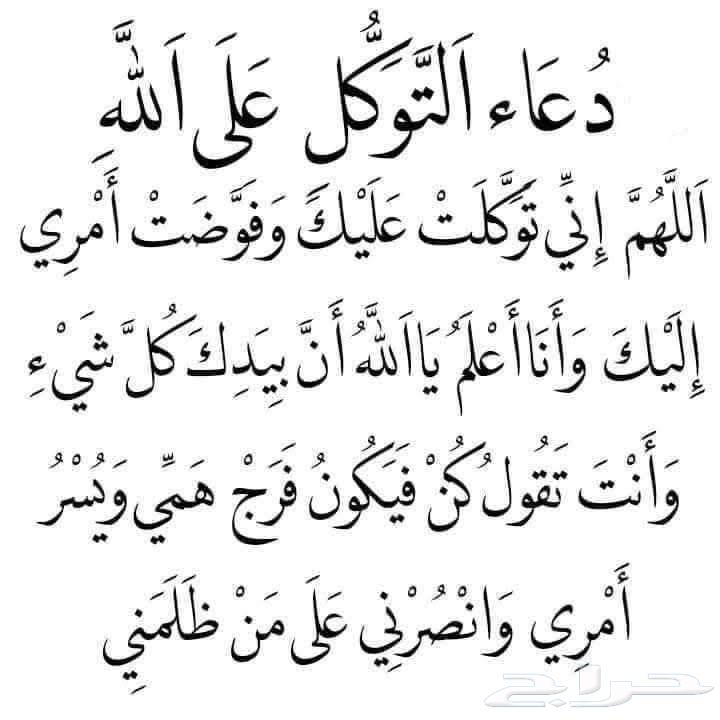 دُعَاء اَلتَّوَكُّل عَلَى اَللَّهِ
اَللَّهُمَّ إِنِّي تَوَكَّلَتْ عَلَيْكَ وَفَوَّضَتْ أَمْرِي
إِلَيْكَ وَأَنَا أَعْلَمُ يَا اَللَّهُ أَنَّ بِيَدِكَ كُلَّ شَيْءٍ
وَأَنْتَ تَقُولُ كُنْ فَيَكُونُ فَرَجْ هَمِّي وَيُسْرُ
أَمْرِي وَانْصُرْنِي عَلَى مَنْ ظَلَمَنِي
حراج